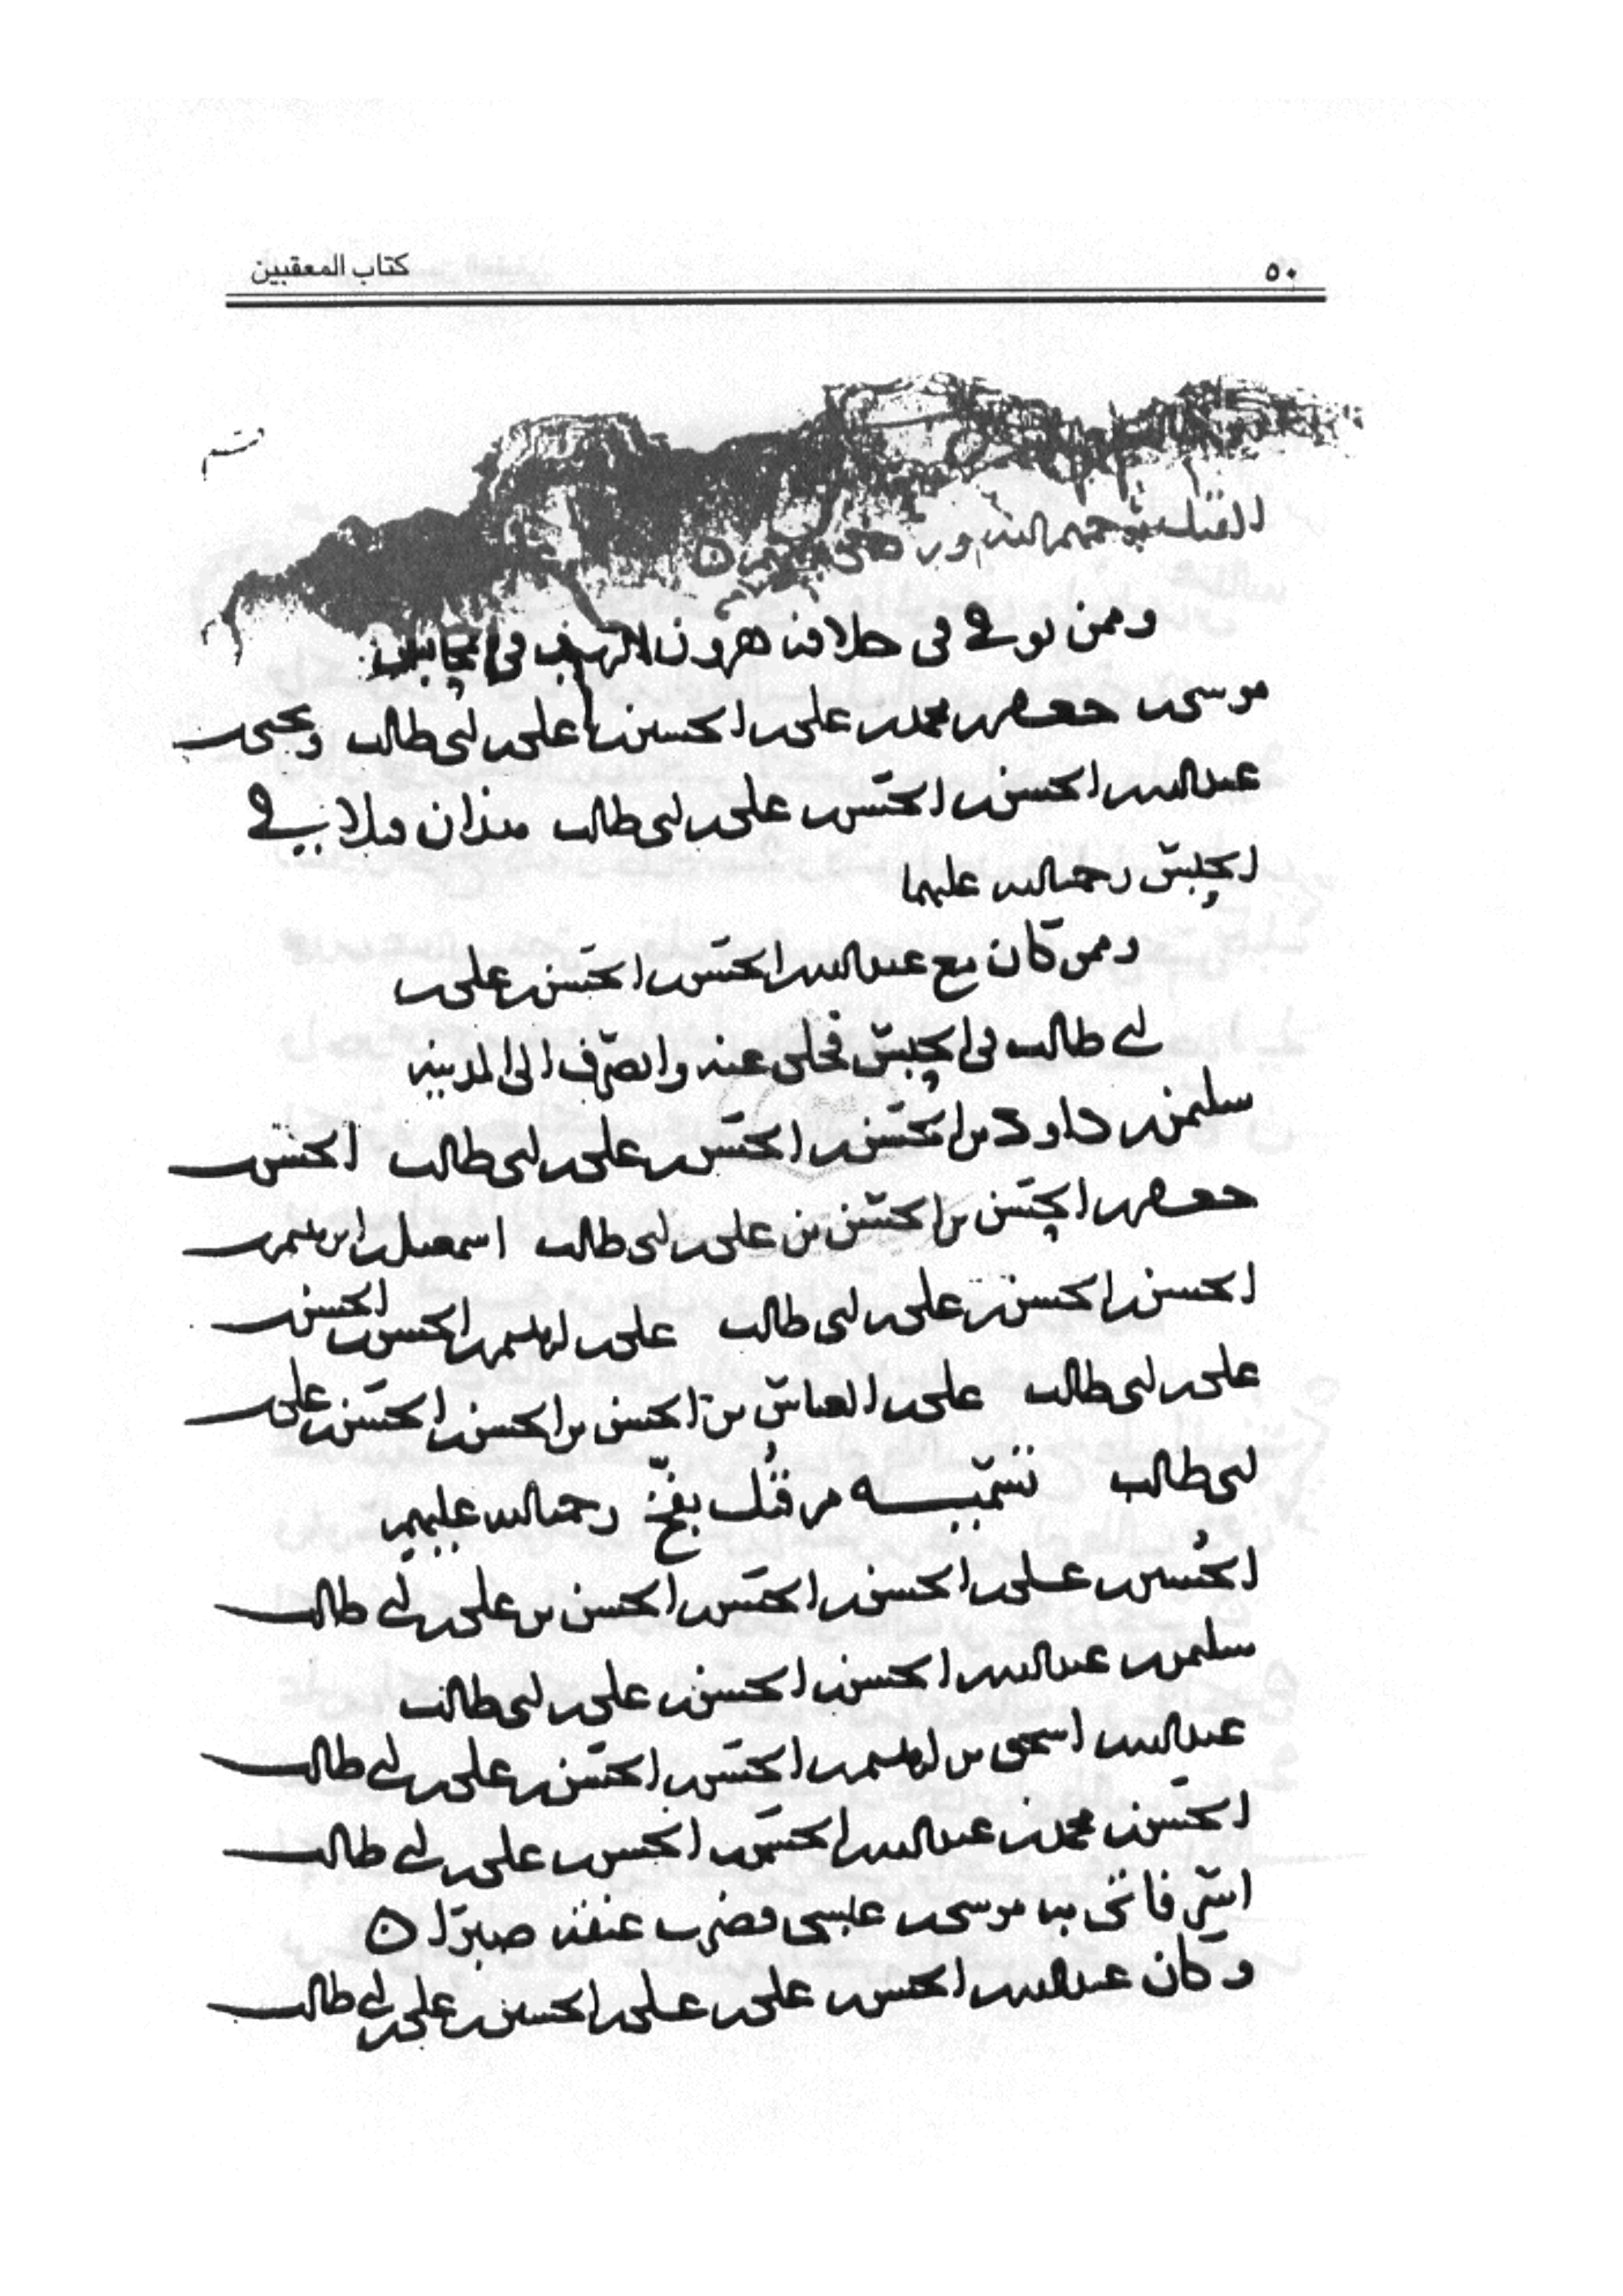 ٥٠ كتاب المعقبين
وممن توفي في خلافة هرون الرشيد في
موسى بن جعفر بن محمد بن علي بن الحسين بن علي بن ابي طالب ويحيى بن
عبد الله بن الحسن بن الحسن بن علي بن ابي طالب هذان قتلا في
الحبس رحمة الله عليهما
وممن كان مع عبد الله بن الحسن بن الحسن بن علي بن
ابي طالب في الحبس فخلى عنه وانصرف الى المدينة
سليمن بن داود بن الحسن بن الحسن بن علي بن ابي طالب الحسن بن
جعفر بن الحسن بن الحسن بن علي بن ابي طالب اسمعيل بن ابرهيم بن
الحسن بن الحسن بن علي بن ابي طالب علي بن ابرهيم بن الحسن بن الحسن بن
علي بن ابي طالب علي بن العباس بن الحسن بن الحسن بن الحسن بن علي بن
ابي طالب تسمية من قتل بفخ رحمة الله عليهم
الحسين بن علي بن الحسن بن الحسن بن الحسن بن علي بن ابي طالب
سليمن بن عبد الله بن الحسن بن الحسن بن علي بن ابي طالب
عبد الله بن اسحق بن ابرهيم بن الحسن بن الحسن بن علي بن ابي طالب
الحسن بن محمد بن عبد الله بن الحسن بن الحسن بن علي بن ابي طالب
اسر فاتى به موسى بن عيسى فضرب عنقه صبرا ه
وكان عبد الله بن الحسن بن علي بن علي بن الحسين بن علي بن ابي طالب